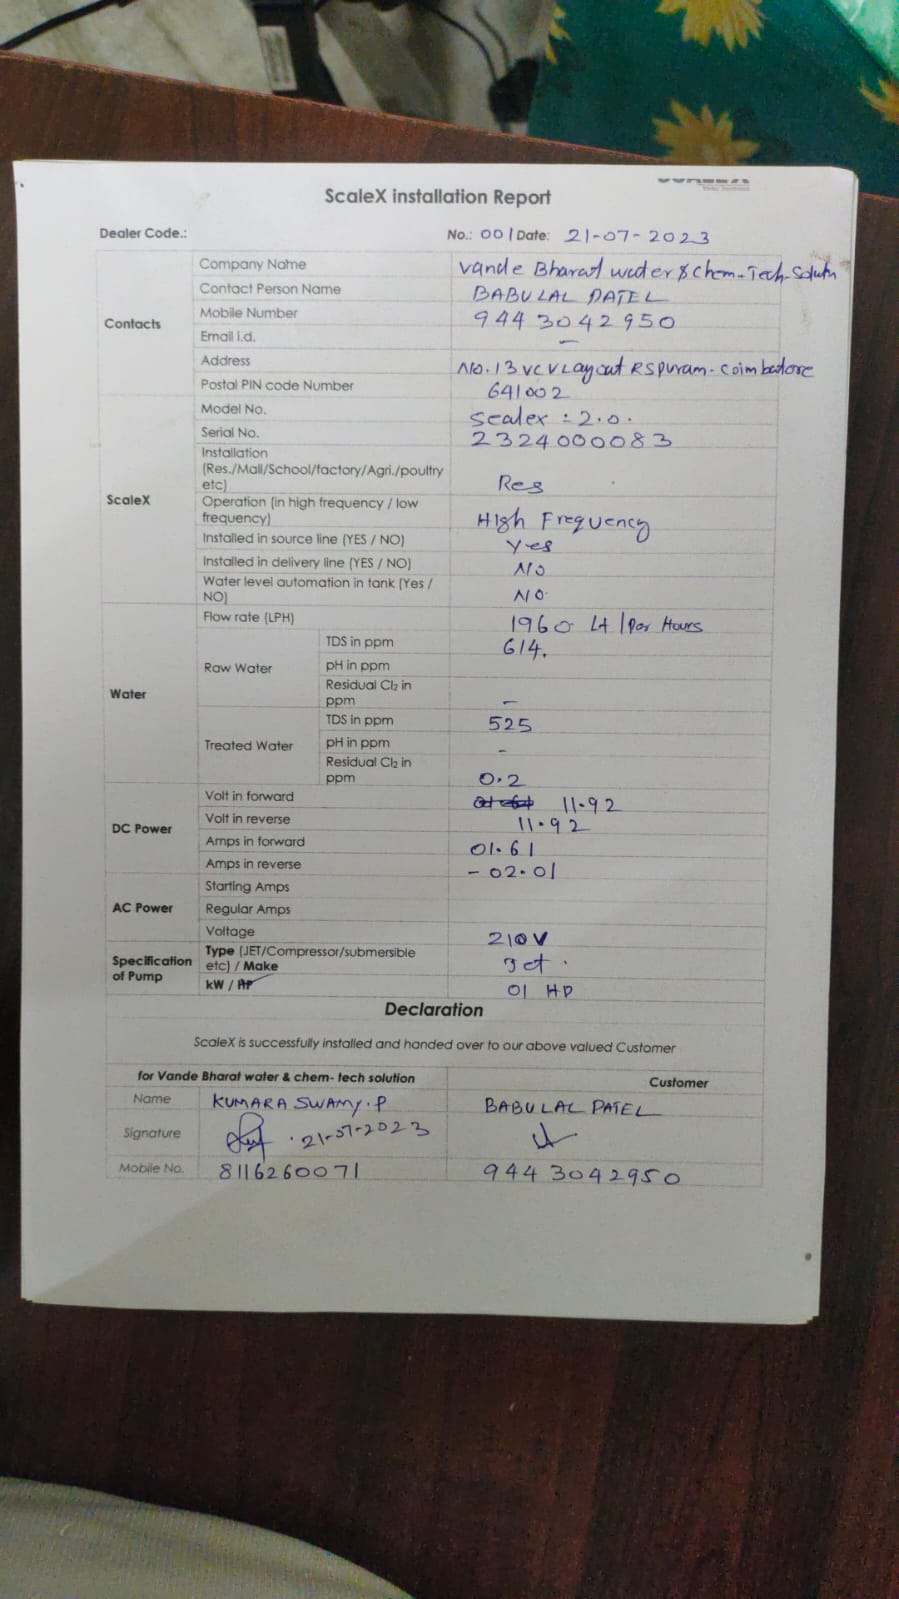 ScaleX installation Report
Dealer Code.: No.: 001 Date: 21-07-2023
Contacts
Company Name Vande Bharat water & Chem-Tech-Solutn
Contact Person Name BABULAL PATEL
Mobile Number 9443042950
Email i.d. -
Address No. 13 VCV Layout RSpuram - Coimbatore
Postal PIN code Number 641002
ScaleX
Model No. Scalex : 2.0.
Serial No. 2324000083
Installation
(Res./Mall/School/factory/Agri./poultry
etc) Res
Operation (in high frequency / low
frequency) High Frequency
Installed in source line (YES / NO) Yes
Installed in delivery line (YES / NO) NO
Water level automation in tank (Yes /
NO) NO.
Water
Flow rate (LPH) 1960 Lt / Per Hours
Raw Water
TDS in ppm 614.
pH in ppm
Residual Cl2 in
ppm -
Treated Water
TDS in ppm 525
pH in ppm -
Residual Cl2 in
ppm 0.2
DC Power
Volt in forward 11.92
Volt in reverse 11.92
Amps in forward 01.61
Amps in reverse - 02.01
AC Power
Starting Amps
Regular Amps
Voltage 210V
Specification
of Pump
Type (JET/Compressor/submersible
etc) / Make Jet.
kW / HP 01 HP
Declaration
ScaleX is successfully installed and handed over to our above valued Customer
for Vande Bharat water & chem- tech solution Customer
Name KUMARA SWAMY.P BABULAL PATEL
Signature 21-07-2023
Mobile No. 8116260071 9443042950